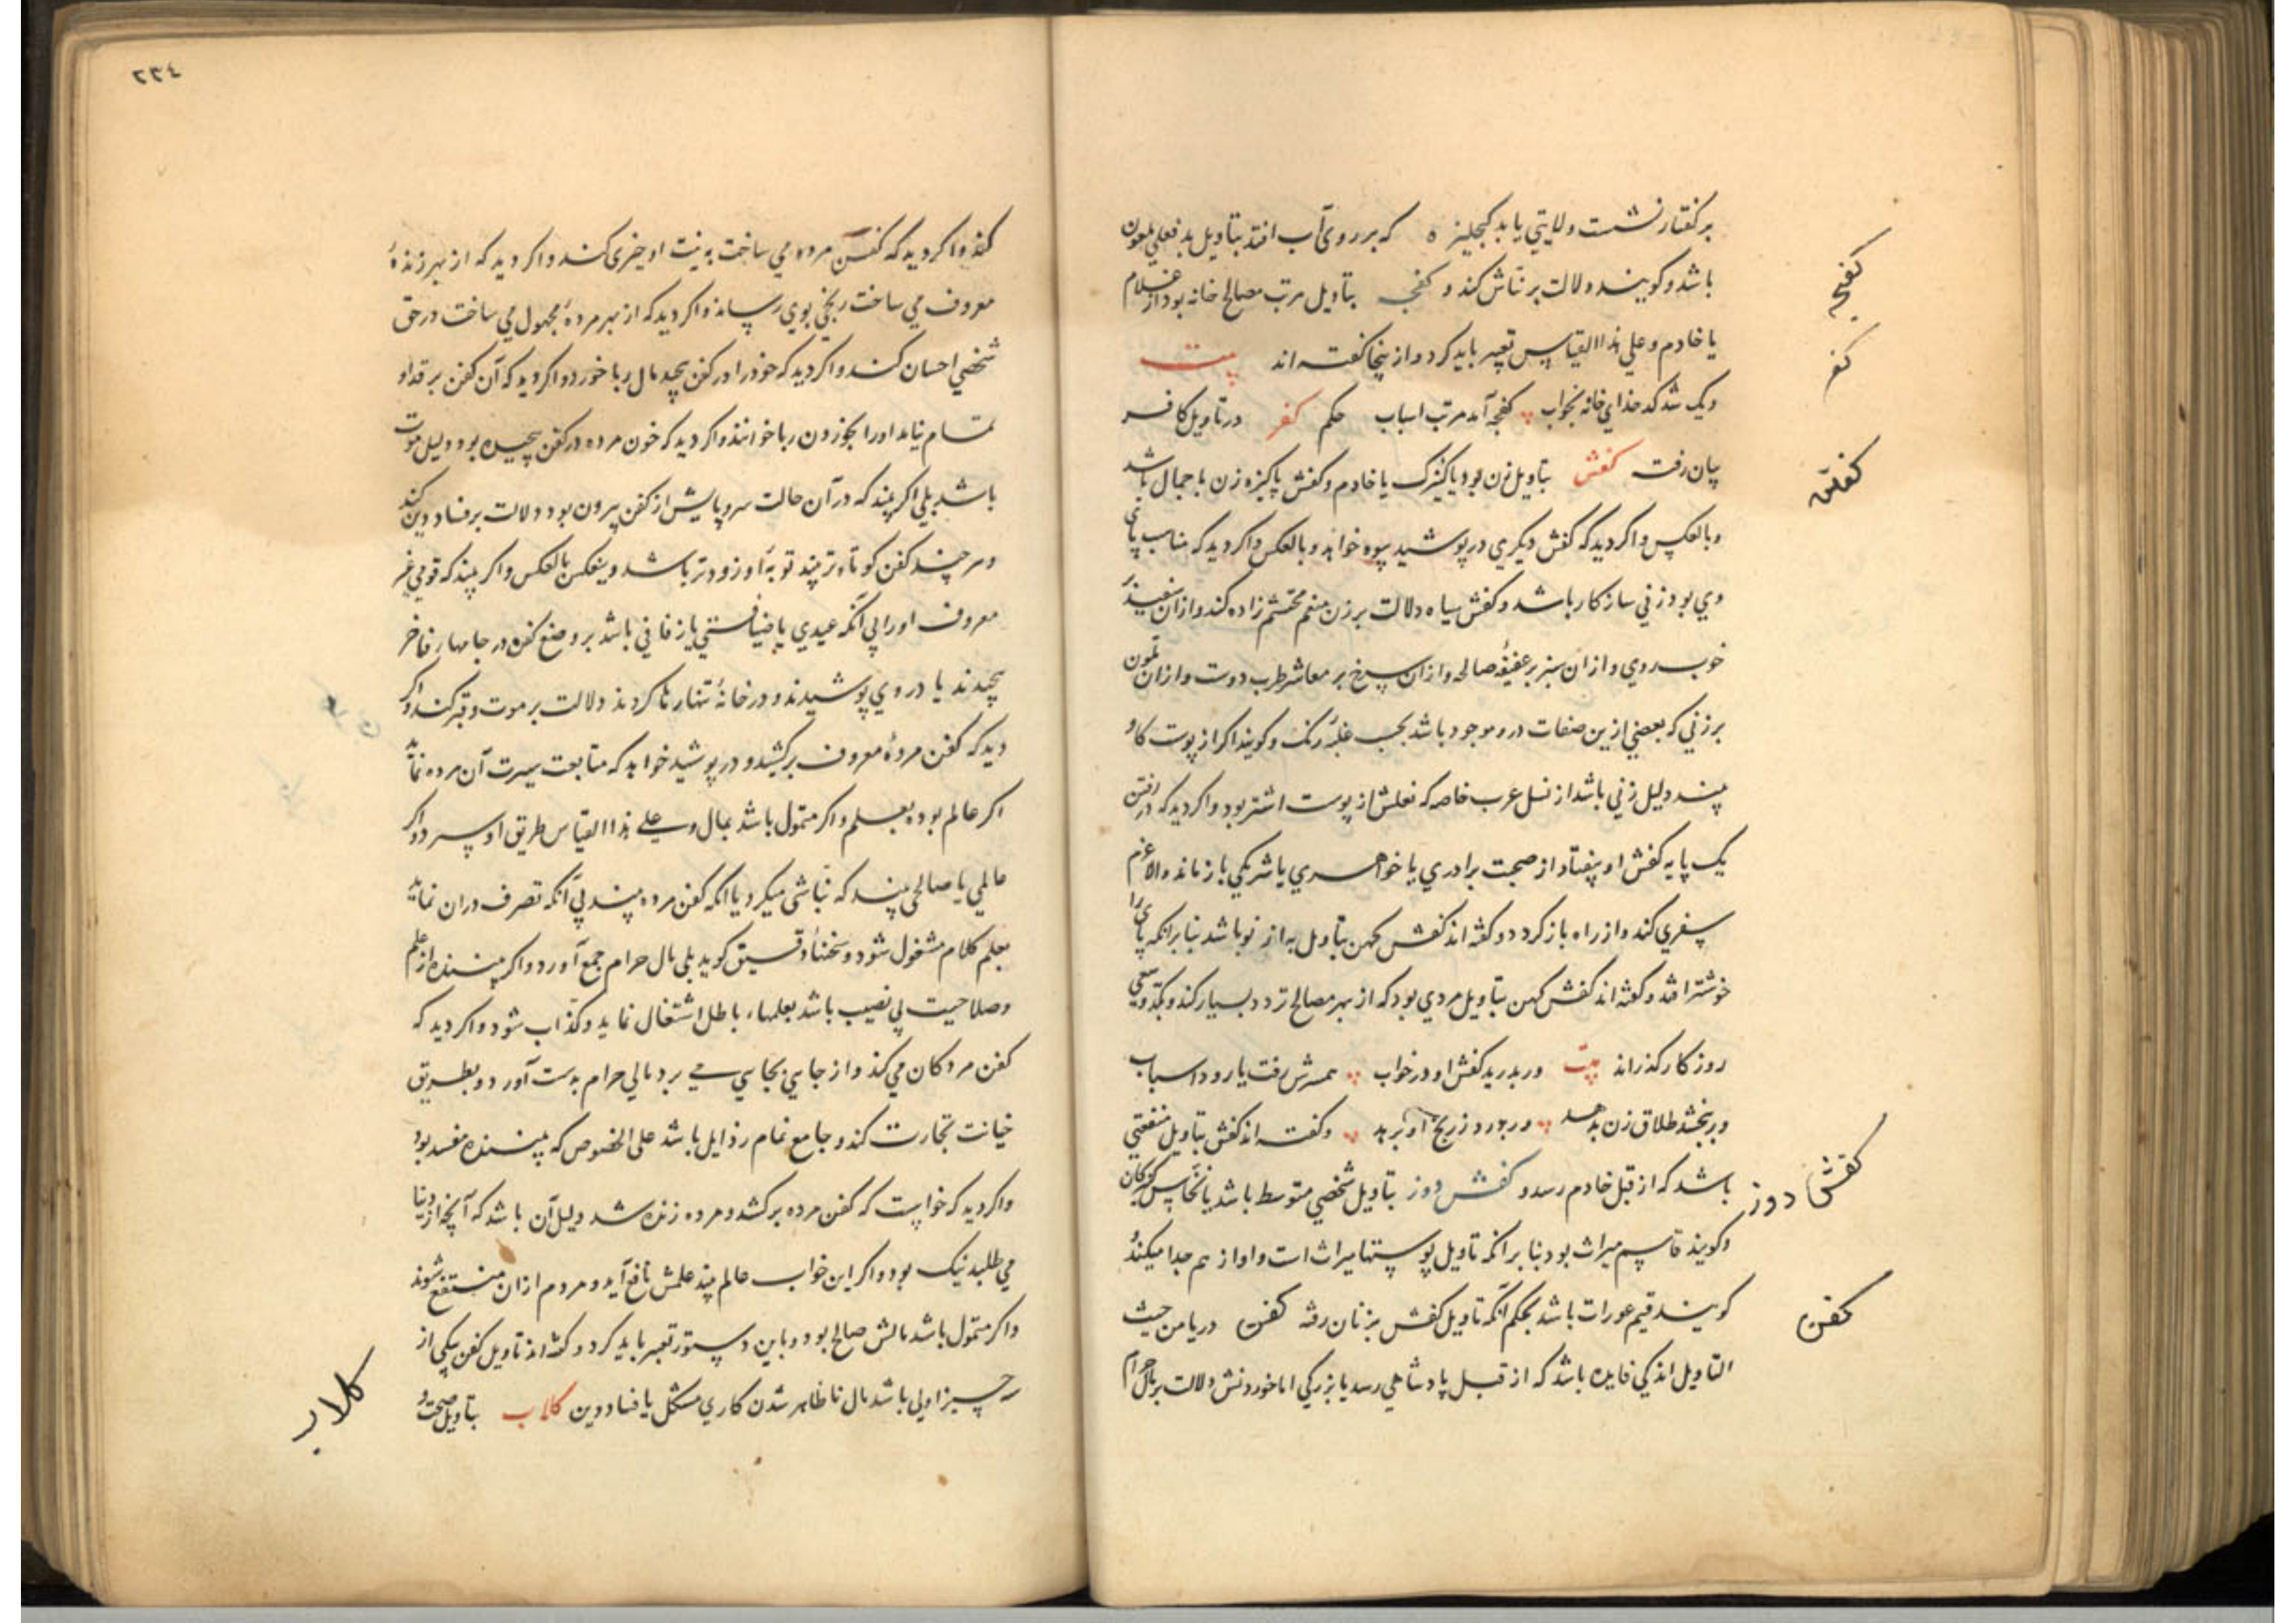 بر کفتار نشست ولایتی یابد کبجلیزه که بر روی آب افتد بتاویل بد فعلی ملعون
باشد و کویند دلالت بر نباش کند و کفجه بتاویل مرتب مصالح خانه بود از غلام
یا خادم و علی هذا القیاس تعبیر باید کرد و از ینجا کفته اند بیت
دیک شد کدخدای خانه بخواب کفجه آمد مرتب اسباب حکم کفر در تاویل کافر
بیان رفت کفش بتاویل زن بود یا کنیزک یا خادم و کفش پاکیزه زن با جمال باشد
و بالعکس و اکر دید که کفش دیکری در پوشید بیوه خواهد و بالعکس و اکر دید که مناسب پای
وی بود زنی سازکار باشد و کفش سیاه دلالت بر زن منعم محتشم زاده کند و ازان سفید بر
خوب روی و ازان سبز بر عفیفهٔ صالحه و ازان سرخ بر معاشر طرب دوست و ازان ملون
بر زنی که بعضی ازین صفات درو موجود باشد بحسب غلبهٔ رنک و کویند اکر از پوست کاو
بیند دلیل زنی باشد از نسل عرب خاصه که نعلش از پوست اشتر بود و اکر دید که در رفتن
یک پایه کفش او بیفتاد از صحبت برادری یا خواهری یا شریکی باز ماند و الا عزم
سفری کند و از راه باز کردد و کفته اند کفش کهن بتاویل به از نو باشد بنا برانکه پای را
خوشتر افتد و کفته اند کفش کهن بتاویل مردی بود که از بهر مصالح تردد بسیار کند و بکد و سعی
روزکار کذراند بیت ور بدرید کفش او در خواب همسرش رفت یا رود اسباب
ور ببخشد طلاق زن بدهد ور بدوزد ز رنج او برهد و کفته اند کفش بتاویل منفعتی
باشد که از قبل خادم رسد و کفش دوز بتاویل شخصی متوسط باشد یا نخاس کنیزکان
و کویند قاسم میراث بود بنا برانکه تاویل پوستها میراث است و او از هم جدا میکند و
کویند قیم عورات باشد بحکم آنکه تاویل کفش بزنان رفته کفن دریا من حیث
التاویل اندکی فایده باشد که از قبل پادشاهی رسد یا بزرکی اما خوردنش دلالت بر مال حرام
کفجه
کفر
کفش
کفش دوز
کفن
٢٣٤
کند و اکر دید که کفن مرده می ساخت به نیت او خیری کند و اکر دید که از بهر زندهٔ
معروف می ساخت رنجی بوی رساند و اکر دید که از بهر مردهٔ مجهول می ساخت در حق
شخصی احسان کند و اکر دید که خود را در کفن پیچید مال ربا خورد و اکر دید که آن کفن بر قد او
تمام نیامد او را بخوردن ربا خوانند و اکر دید که خون مرده در کفن پیچیده بود دلیل موت
باشد بلی اکر بیند که در آن حالت سر و پایش از کفن بیرون بود دلالت بر فساد دین کند
و هر چند کفن کوتاه تر بیند توبه او زودتر باشد و ینعکس بالعکس و اکر بیند که قومی غیر
معروف او را بی آنکه عیدی یا ضیافتی یا زفافی باشد بر وضع کفن در جامهاء فاخر
پیچیدند یا در وی پوشیدند و در خانهٔ تنها رها کردند دلالت بر موت و قبر کند و اکر
دید که کفن مردهٔ معروف برکشید و در پوشید خواهد که متابعت سیرت آن مرده نماید
اکر عالم بوده بعلم و اکر متمول باشد بمال و علی هذا القیاس طریق او سپرد و اکر
عالمی یا صالحی بیند که نباشی میکرد یا انکه کفن مرده بیند بی آنکه تصرف دران نماید
بعلم کلام مشغول شود و سخنهاء دقیق کوید بلی مال حرام جمع آورد و اکر بیننده از علم
و صلاحیت بی نصیب باشد بعلمهاء باطل اشتغال نماید و کذاب شود و اکر دید که
کفن مردکان می کند و از جایی بجایی می برد مالی حرام بدست آورد و بطریق
خیانت تجارت کند و جامع تمام رذایل باشد علی الخصوص که بیننده مفسد بود
و اکر دید که خواست که کفن مرده برکشد و مرده زنده شد دلیل آن باشد که آنچه از دنیا
می طلبد نیک بود و اکر این خواب عالم بیند علمش نافع آید و مردم ازان منتفع شوند
و اکر متمول باشد مالش صالح بود و باین دستور تعبیر باید کرد و کفته اند تاویل کفن یکی از
سه چیز اولی باشد مال نا ظاهر شدن کاری مشکل یا فساد دین کلاب بتاویل صحت و
کلاب